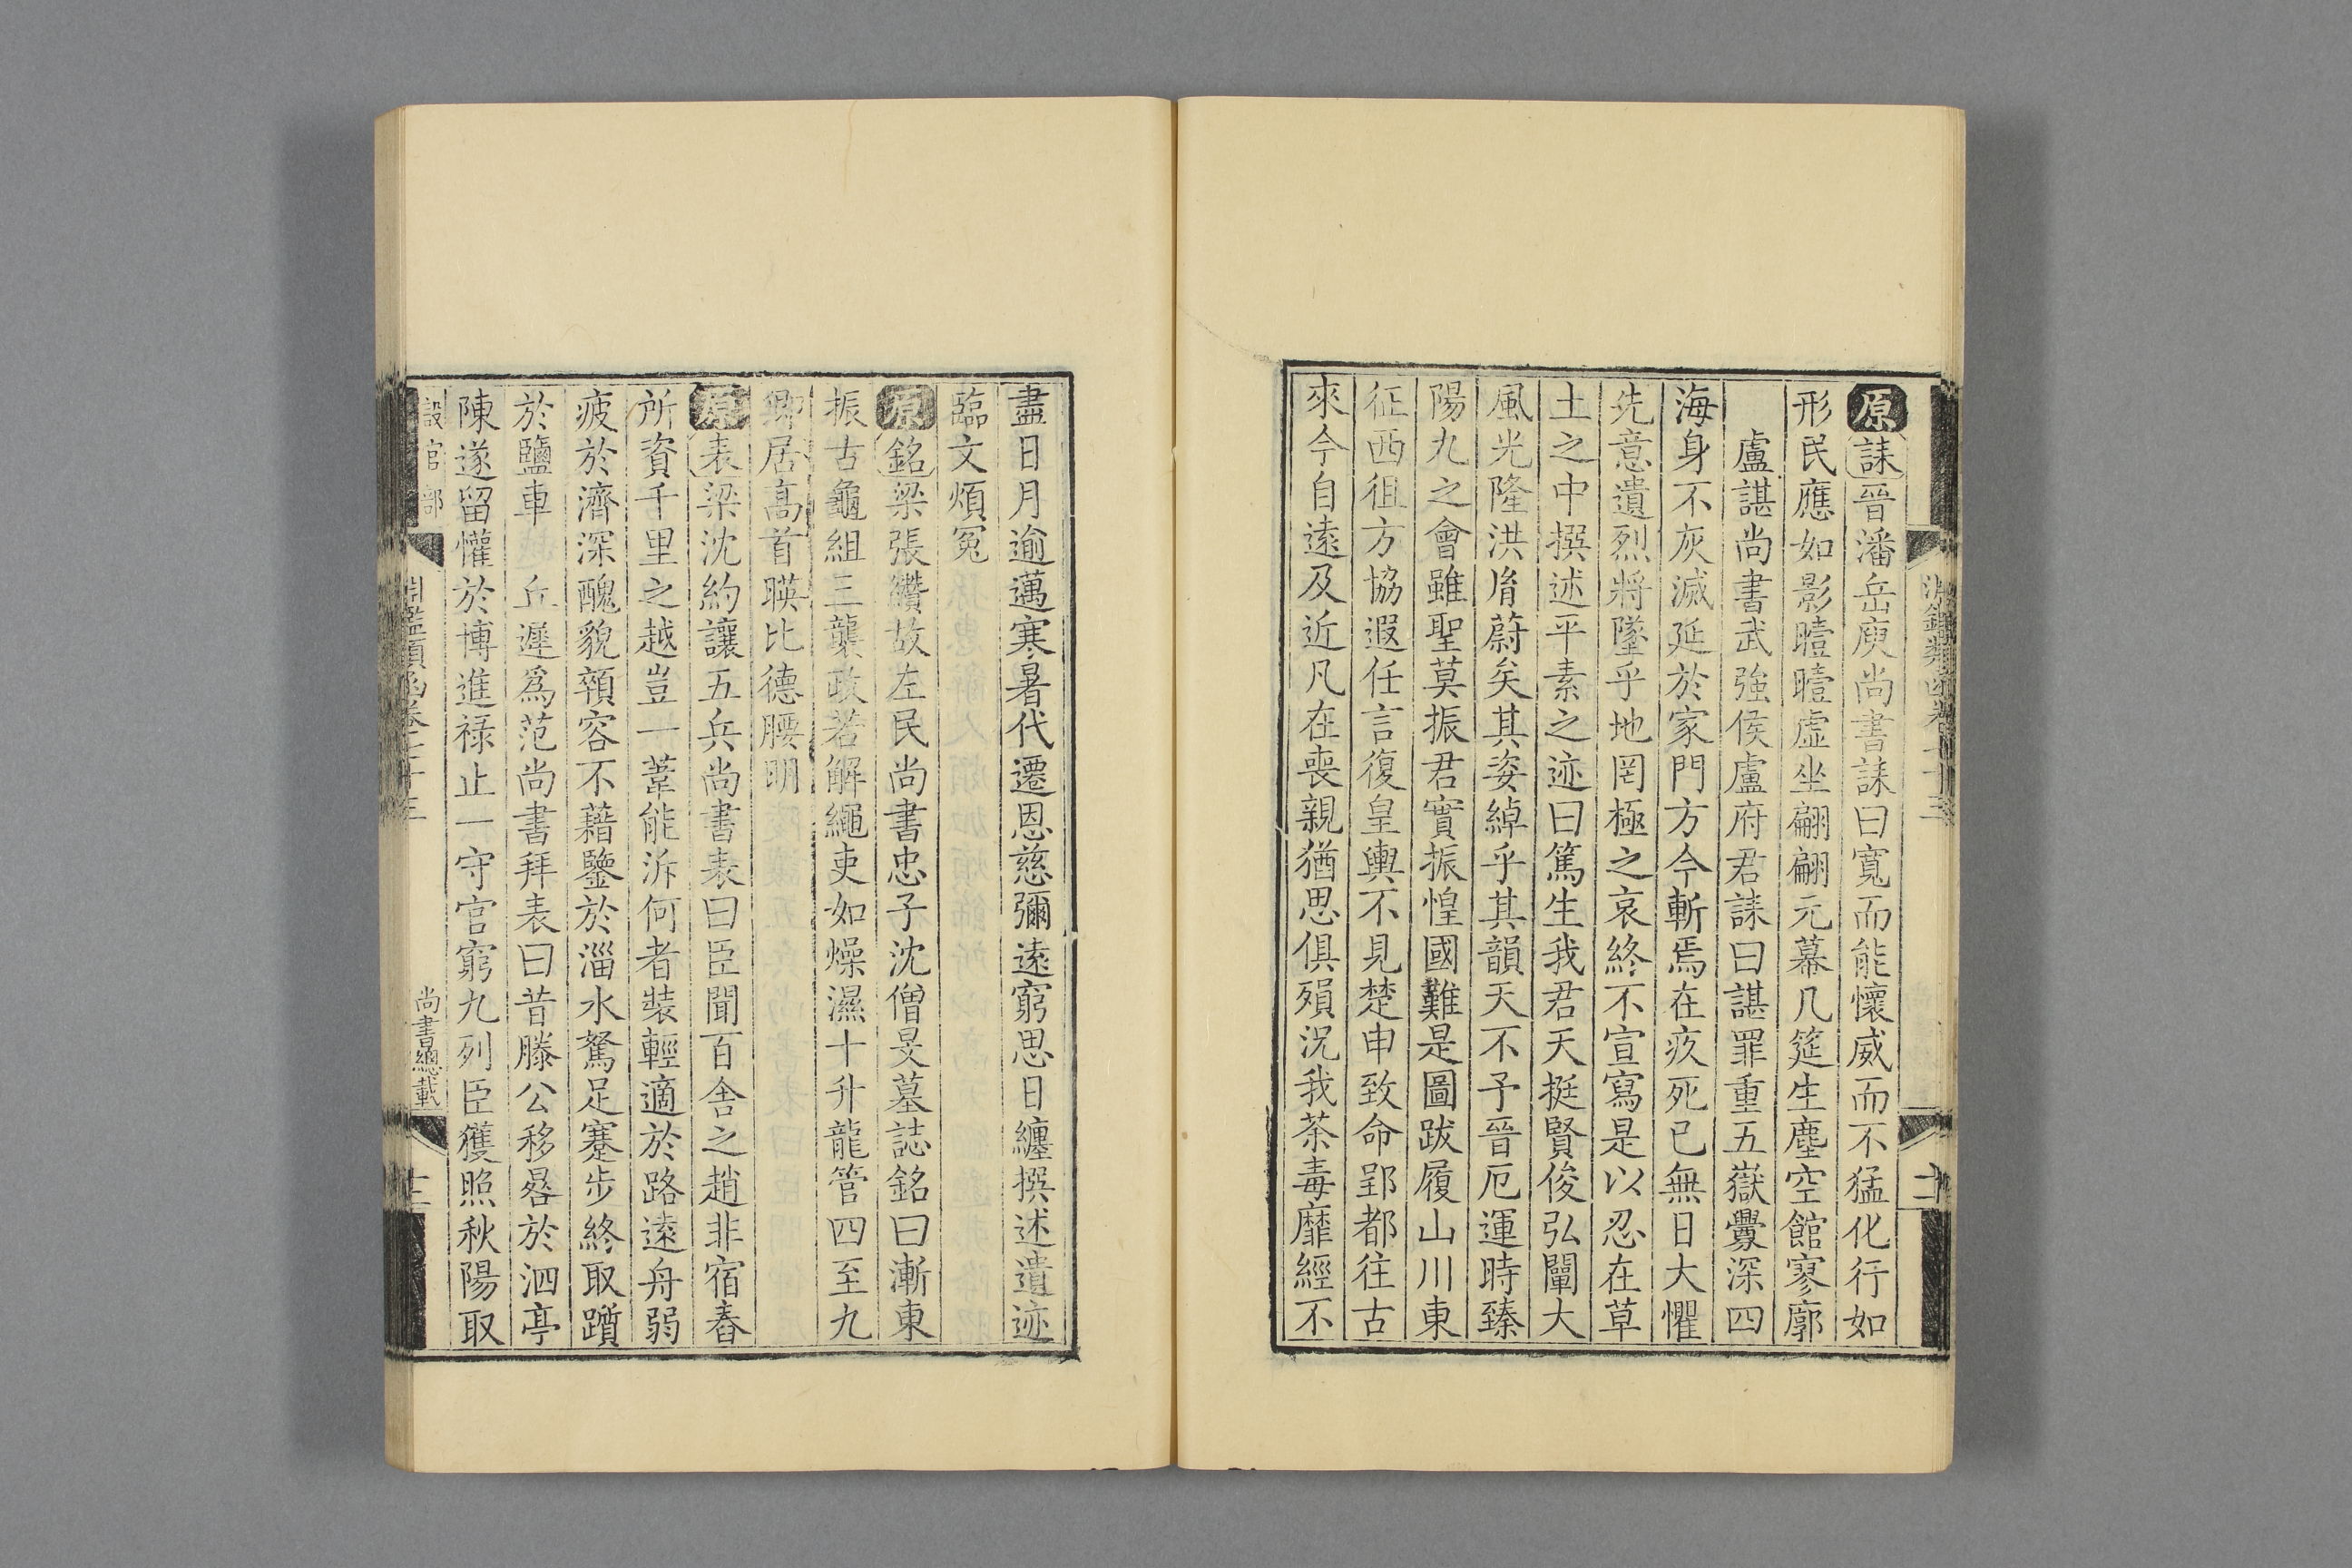 原誄晉潘岳庾尚書誄曰寬而能懷威而不猛化行如
形民應如影曀曀虛坐翩翩元幕几筵生塵空館寥廓
盧諶尚書武強侯盧府君誄曰諶罪重五嶽釁深四
海身不灰滅延於家門方今斬焉在疚死已無日大懼
先意遺烈將墜乎地罔極之哀終不宣寫是以忍在草
土之中撰述平素之迹曰篤生我君天挺賢俊弘闡大
風光隆洪胄蔚矣其姿綽乎其韻天不予晉厄運時臻
陽九之會雖聖莫振君實振惶國難是圖跋履山川東
征西徂方協遐任言復皇輿不見楚申致命郢都往古
來今自遠及近凡在喪親猶思俱殞況我荼毒靡經不
盡日月逾邁寒暑代遷恩慈彌遠窮思日纏撰述遺迹
臨文煩冤
原銘梁張纘故左民尚書忠子沈僧旻墓誌銘曰漸東
振古龜組三襲政若解繩吏如燥濕十升龍管四至九
卿居高首暎比德腰明
原表梁沈約讓五兵尚書表曰臣聞百舍之趙非宿舂
所資千里之越豈一葦能泝何者裝輕適於路遠舟弱
疲於濟深醜貌顇容不藉鑒於淄水駑足蹇步終取躓
於鹽車 丘遲爲范尚書拜表曰昔滕公移晷於泗亭
陳遂留懽於博進祿止一守官窮九列臣獲照秋陽取
設官部 淵鑑類函卷七十三 尚書總載 十三